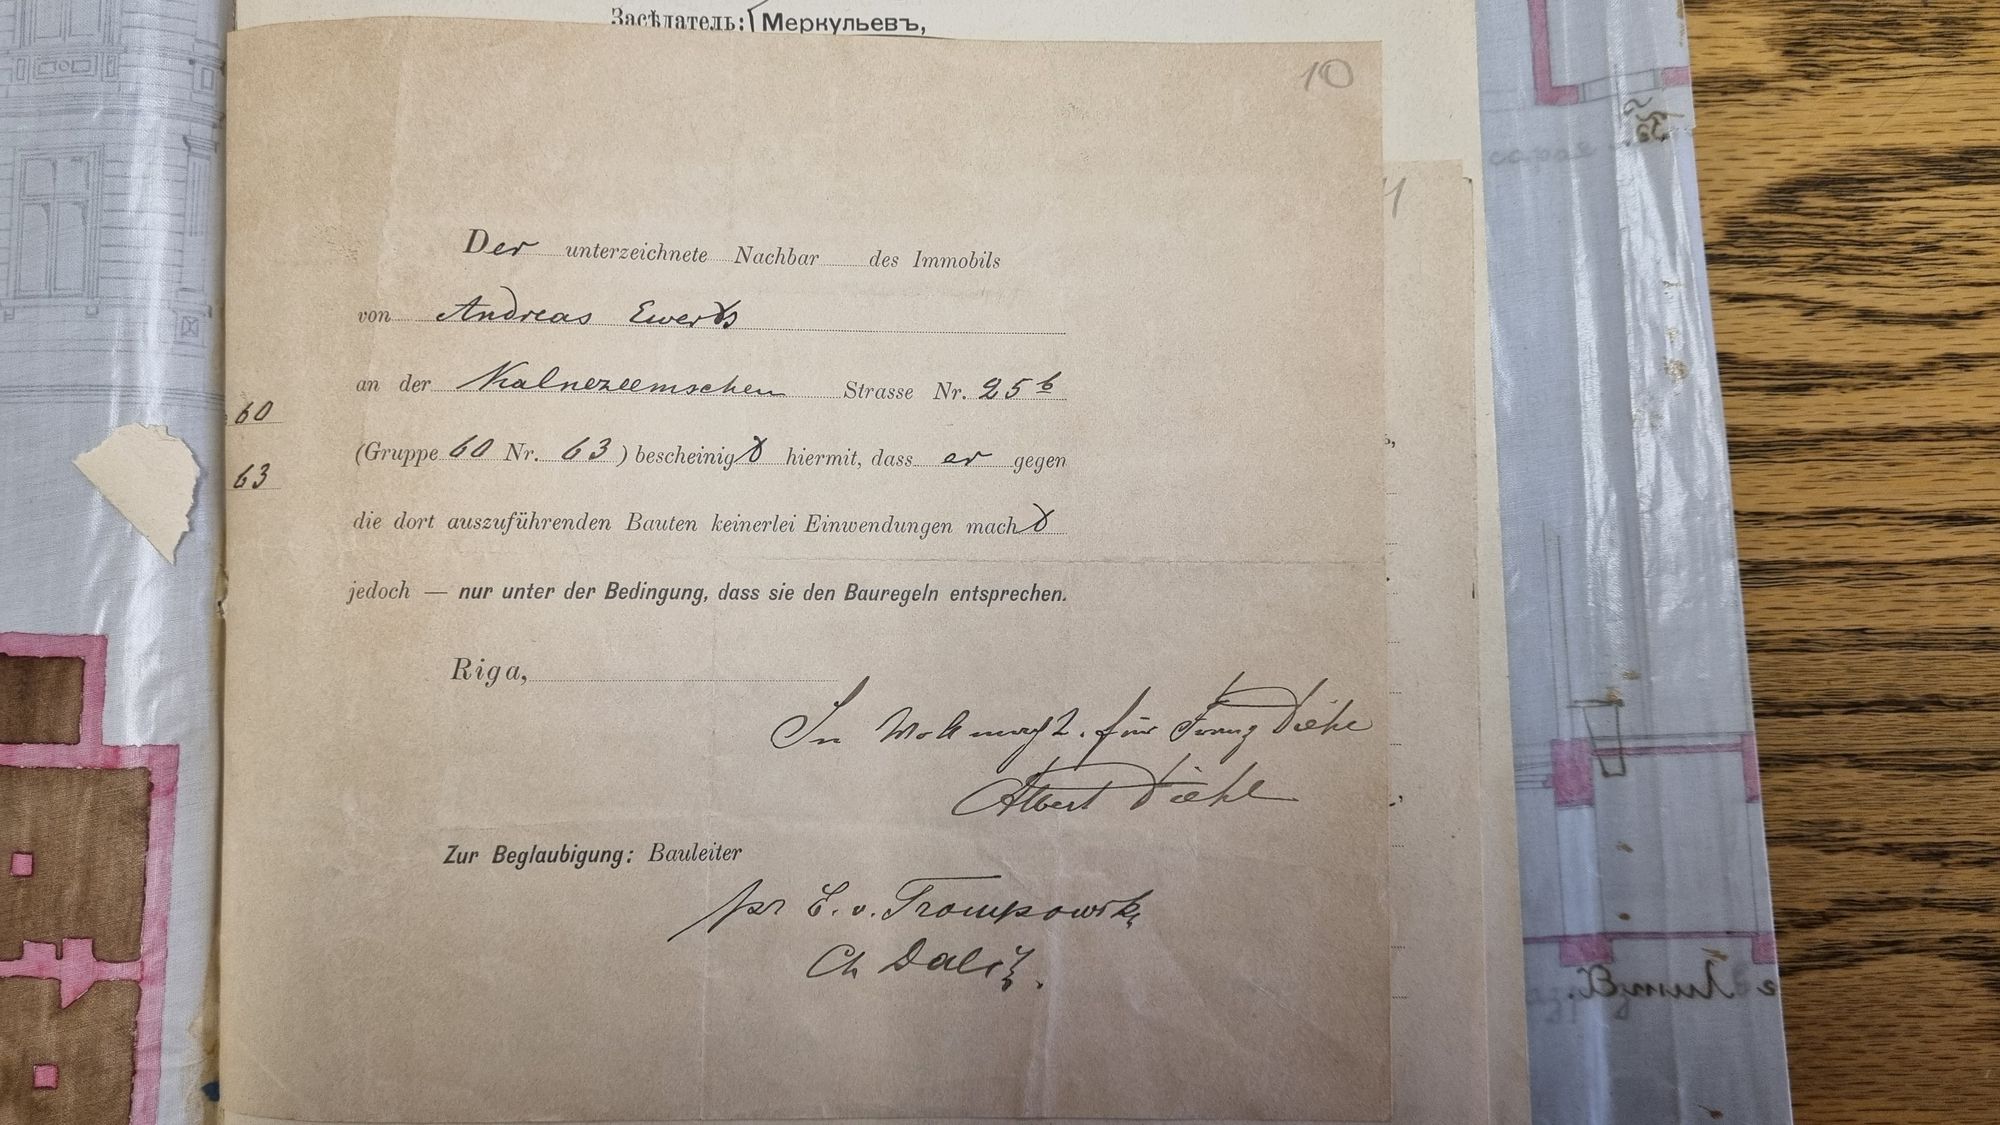 Засѣдатель: Меркульевъ,
10
Der unterzeichnete Nachbar des Immobils
von Andreas Ewerts
an der Kalnezeemschen Strasse Nr. 25 b
60
(Gruppe 60 Nr. 63) bescheinigt hiermit, dass er gegen
63
die dort auszuführenden Bauten keinerlei Einwendungen macht
jedoch — nur unter der Bedingung, dass sie den Bauregeln entsprechen.
Riga,
In Vollmacht. für Franz Diehl
Albert Diehl
Zur Beglaubigung: Bauleiter
pr E. v. Trompowski
Ch